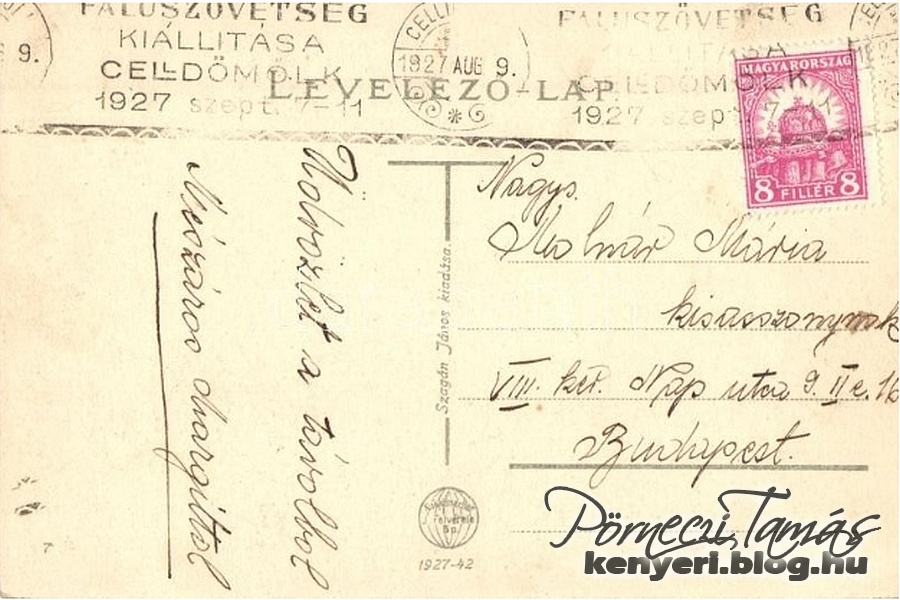 FALUSZÖVETSÉG
KIÁLLITÁSA
CELLDÖMÖLK
1927 szept. 7-11
9.
CELL
1927 AUG 9.
FALUSZÖVETSÉG
KIÁLLITÁSA
CELLDÖMÖLK
1927 szept. 7-11
LEVELEZŐ-LAP
MAGYARORSZÁG
8 FILLÉR 8
Üdvözlet a távolból
Mészáros Margittól
Szagán János kiadása.
Nagys.
Molnár Mária
kisasszonynak
VIII. ker. Nap utca 9. II e. 16
Budapest.
felvétele
Bp.
1927-42
7
Pörneczi Tamás
kenyeri.blog.hu